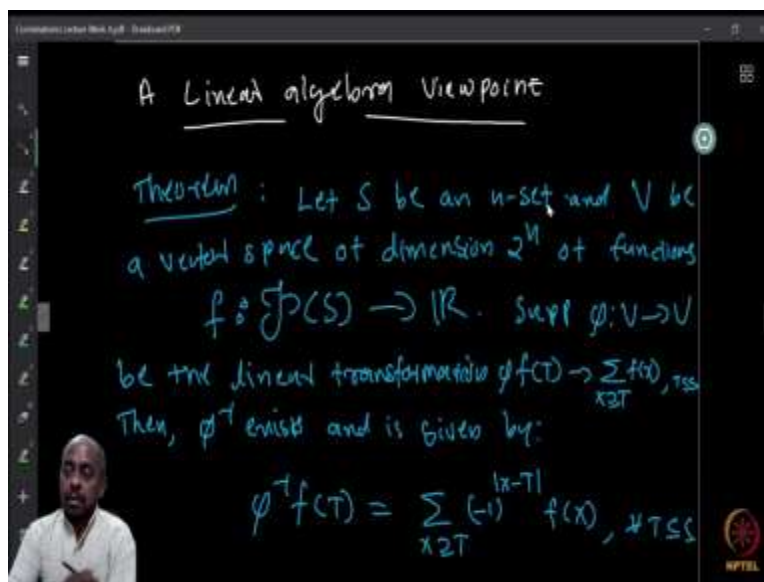 A Linear algebra Viewpoint
Theorem : Let S be an n-set and V be
a vector space of dimension 2^n of functions
f : P(S) → R. Supp φ: V → V
be the linear transformation φf(T) → Σ_{X⊇T} f(X), T⊆S
Then, φ^-1 exists and is given by:
φ^-1 f(T) = Σ_{X⊇T} (-1)^{|X-T|} f(X), ∀ T⊆S
NPTEL